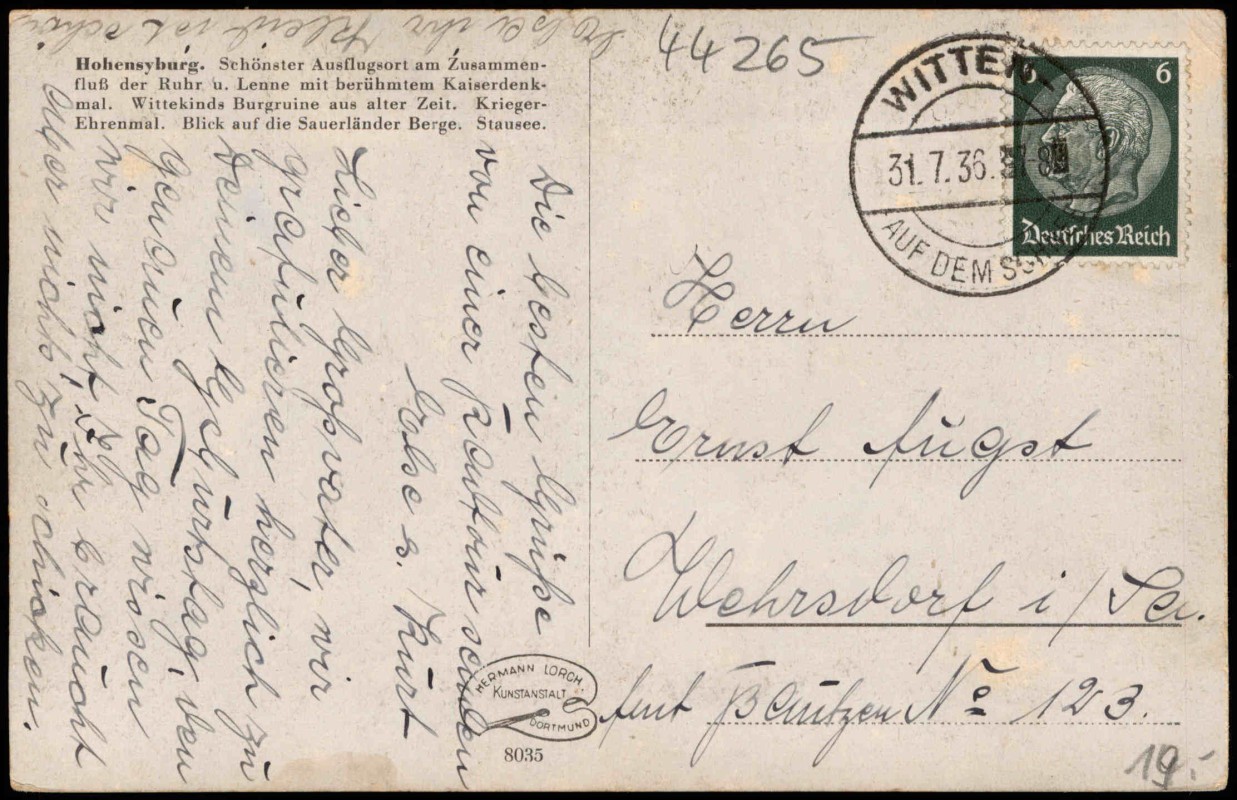 Else ihr Kleid ist schön
44265
Hohensyburg. Schönster Ausflugsort am Zusammen-
fluß der Ruhr u. Lenne mit berühmtem Kaiserdenk-
mal. Wittekinds Burgruine aus alter Zeit. Krieger-
Ehrenmal. Blick auf die Sauerländer Berge. Stausee.
Die besten Grüße
von einer Radtour senden
Else u. Kurt
Lieber Großvater, wir
gratulieren herzlich zu
Deinem Geburtstag, den
genauen Tag wissen
wir nicht, Ihr braucht
aber nichts zu schicken.
WITTEN-
31.7.36.
AUF DEM
6 6
Deutsches Reich
Herrn
Ernst August
Wehrsdorf i/Sa.
Amt Bautzen No 123.
HERMANN LORCH
KUNSTANSTALT
DORTMUND
8035
19.-